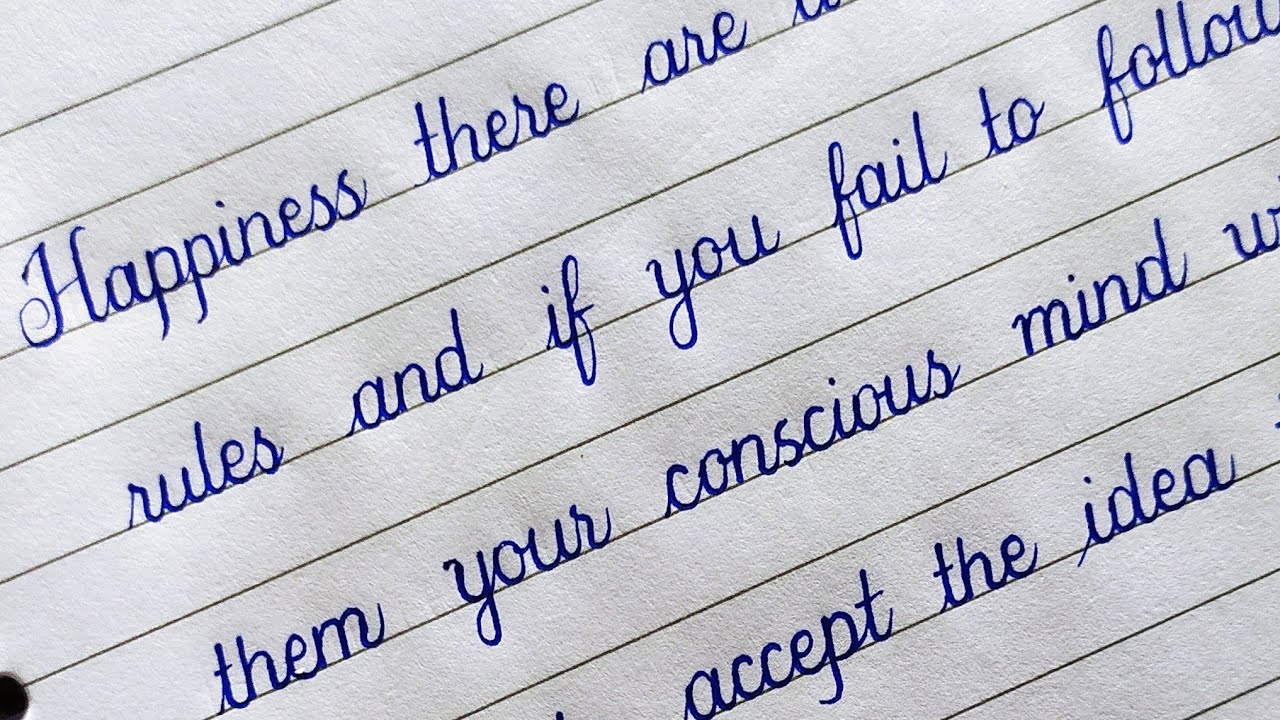 Happiness there are
rules and if you fail to follow
them your conscious mind
accept the idea